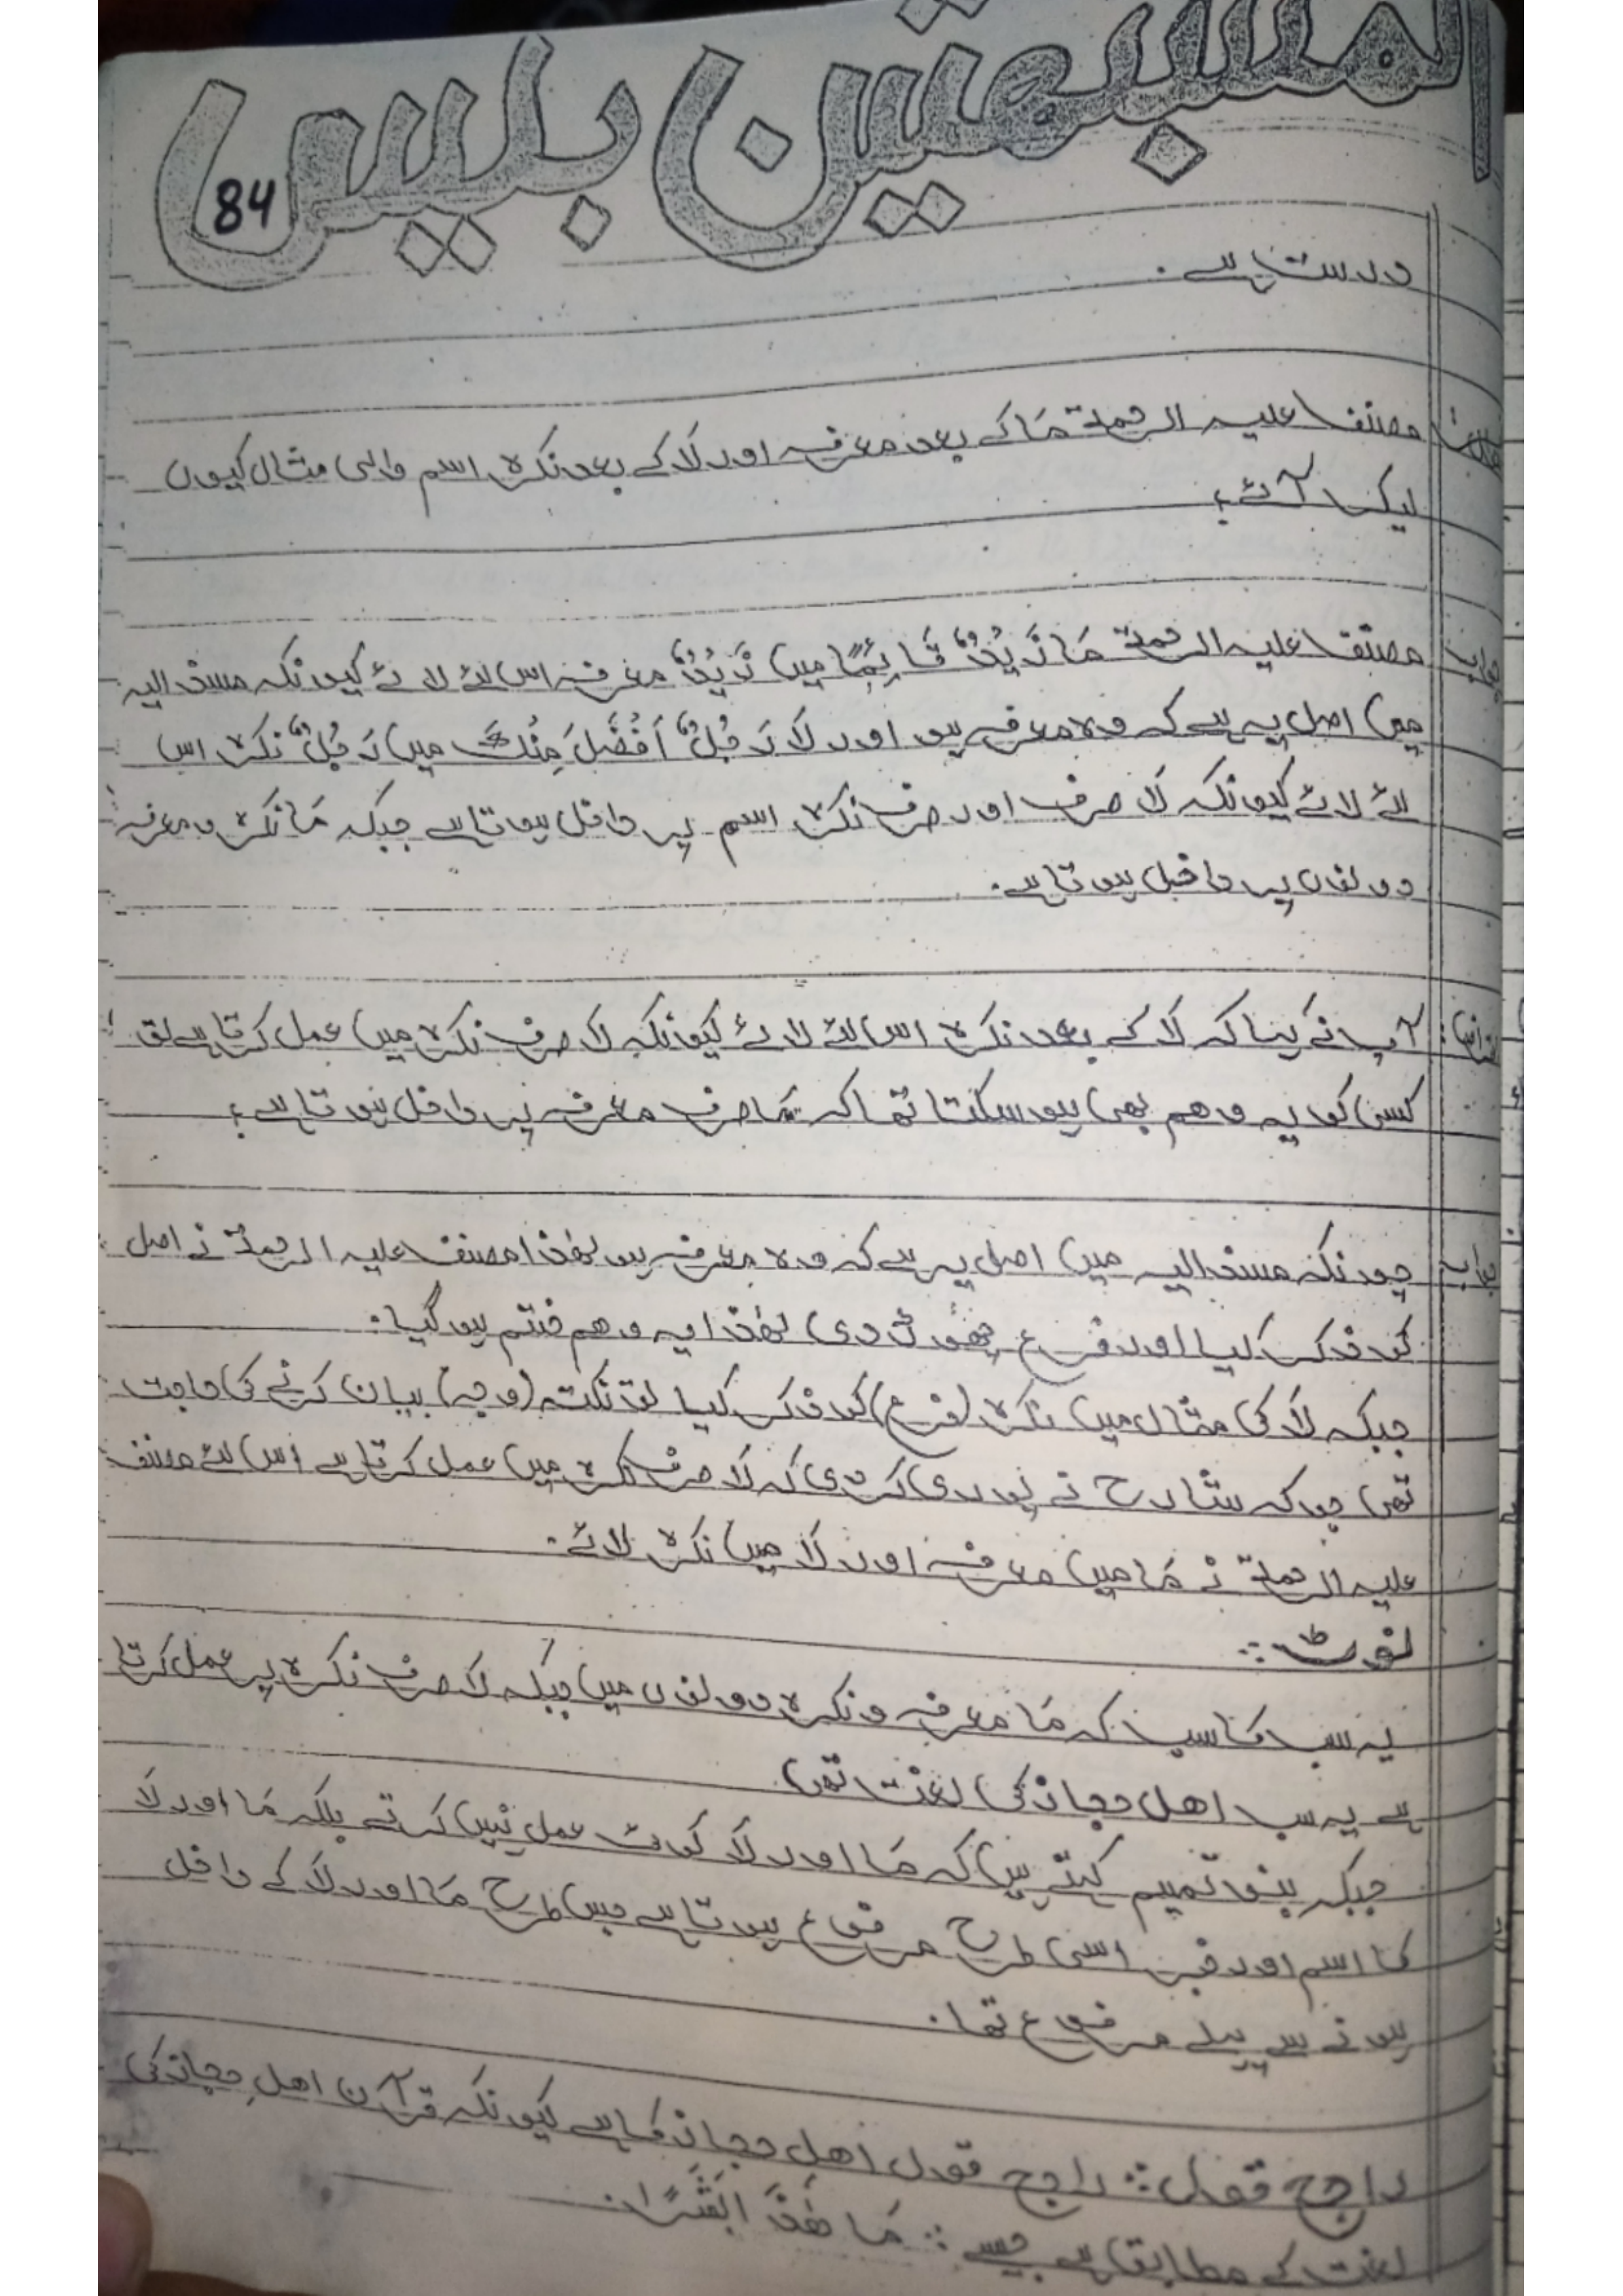 المشبھتین بلیس
84
درست ہے۔
مصنف علیہ الرحمۃ مَا کے بعد معرفہ اور لَا کے بعد نکرہ اسم والی مثال کیوں
لیکر آئے؟
جواب مصنف علیہ الرحمۃ مَا زَیْدٌ قَائِمًا میں زَیْدٌ معرفہ اس لئے لائے کیونکہ مسند الیہ
میں اصل یہ ہے کہ وہ معرفہ ہو اور لَا رَجُلٌ اَفْضَلَ مِنْكَ میں رَجُلٌ نکرہ اس
لئے لائے کیونکہ لَا صرف اور صرف نکرہ اسم پر داخل ہوتا ہے جبکہ مَا نکرہ و معرفہ
دونوں پر داخل ہوتا ہے۔
آپ نے کہا کہ لَا کے بعد نکرہ اس لئے لائے کیونکہ لَا صرف نکرہ میں عمل کرتا ہے تو
کسی کو یہ وھم بھی ہو سکتا تھا کہ مَا صرف معرفہ پر داخل ہوتا ہے؟
جواب چونکہ مسند الیہ میں اصل یہ ہے کہ وہ معرفہ ہو لھٰذا مصنف علیہ الرحمۃ نے اصل
کو ذکر کیا اور فرع چھوڑ دی لھٰذا یہ وھم ختم ہو گیا۔
جبکہ لَا کی مثال میں نکرہ (فرع) کو ذکر کیا تو نکتہ (وجہ) بیان کرنے کی حاجت
تھی جو کہ شارح نے پوری کر دی کہ لَا صرف نکرہ میں عمل کرتا ہے اس لئے مصنف
علیہ الرحمۃ نے مَا میں معرفہ اور لَا میں نکرہ لائے۔
نوٹ:
یہ سب کا سب کہ مَا معرفہ و نکرہ دونوں میں جبکہ لَا صرف نکرہ پر عمل کرتا
ہے یہ سب اھل حجاز کی لغت تھی
جبکہ بنو تمیم کہتے ہیں کہ مَا اور لَا کوئی عمل نہیں کرتے بلکہ مَا اور لَا
کا اسم اور خبر اسی طرح مرفوع ہوتا ہے جس طرح مَا اور لَا کے داخل
ہونے سے پہلے مرفوع تھا۔
راجح قول: راجح قول اھلِ حجاز کا ہے کیونکہ قرآن اھلِ حجاز کی
لغت کے مطابق ہے جیسے: مَا ھٰذَ ابَشَرًا۔